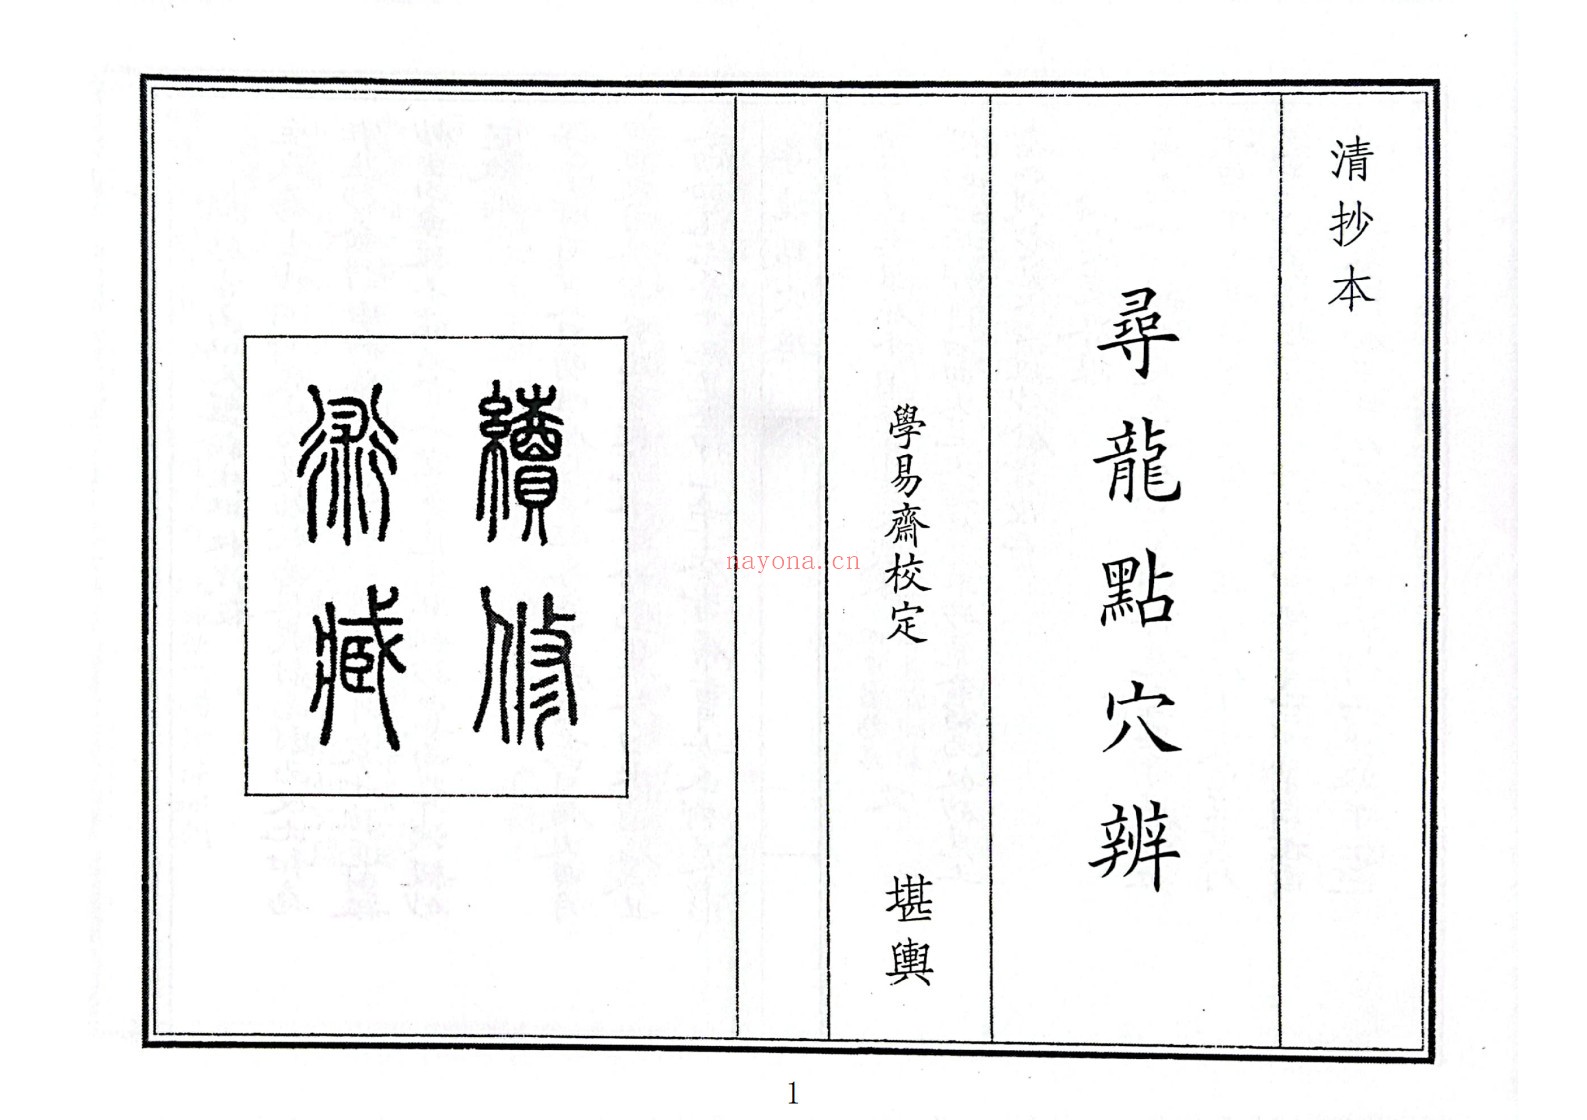 清抄本
尋龍點穴辨
學易齋校定 堪輿
續修
術臧
nayona.cn
1